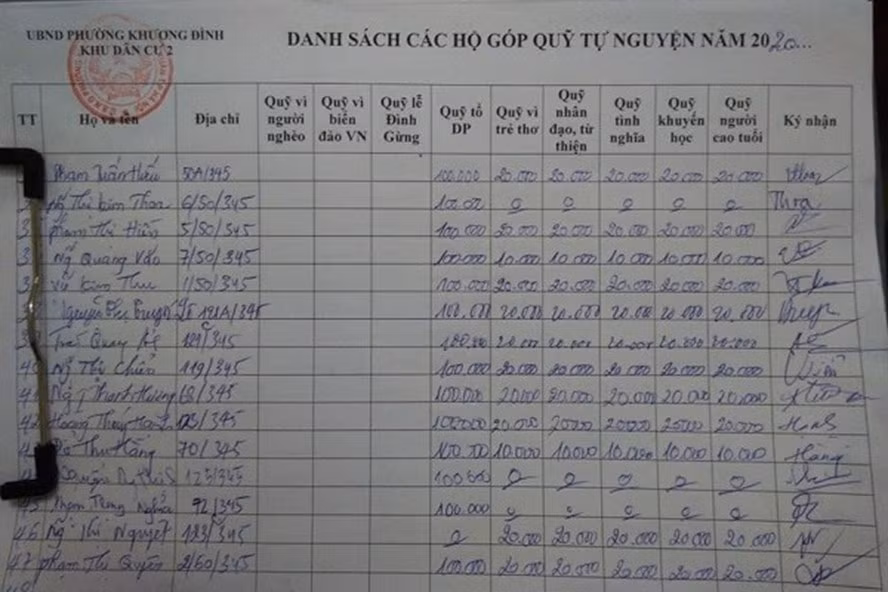 UBND PHƯỜNG KHƯƠNG ĐÌNH
KHU DÂN CƯ 2
DANH SÁCH CÁC HỘ GÓP QUỸ TỰ NGUYỆN NĂM 2020...
TT Họ và tên Địa chỉ Quỹ vì người nghèo Quỹ vì biển đảo VN Quỹ lễ Đình Gừng Quỹ tổ DP Quỹ vì trẻ thơ Quỹ nhân đạo, từ thiện Quỹ tình nghĩa Quỹ khuyến học Quỹ người cao tuổi Ký nhận
Phạm Tuấn Hiếu 50A/345 100.000 20.000 20.000 20.000 20.000 20.000
Thị Kim Thoa 6/50/345 100.000 0 0 0 0 0 Thoa
Phạm Thị Hiền 5/50/345 100.000 20.000 20.000 20.000 20.000 20.000
Ng Quang Vấn 7/50/345 100.000 10.000 10.000 10.000 10.000 10.000
Vũ Kim Thu 1/50/345 100.000 20.000 20.000 20.000 20.000 20.000
Nguyễn 121A/345 100.000 20.000 20.000 20.000 20.000 20.000
Trần Quang 121C/345 100.000 20.000 20.000 20.000 20.000 20.000
40 Ng Thị Chiến 119/345 100.000 20.000 20.000 20.000 20.000 20.000
41 Ng Thanh Hương /345 100.000 20.000 20.000 20.000 20.000 20.000
42 Hoàng Thúy /345 100.000 20.000 20.000 20.000 20.000 20.000
Đỗ Thu Hằng 70/345 100.000 10.000 10.000 10.000 10.000 10.000 Hằng
125/345 100.000 0 0 0 0 0
45 Phạm Trung Nghĩa 92/345 100.000 0 0 0 0 0
46 Ng Thị Nguyệt 123/345 0 20.000 20.000 20.000 20.000 20.000
47 Phạm Thị Quyên 2/50/345 100.000 20.000 20.000 20.000 20.000 20.000